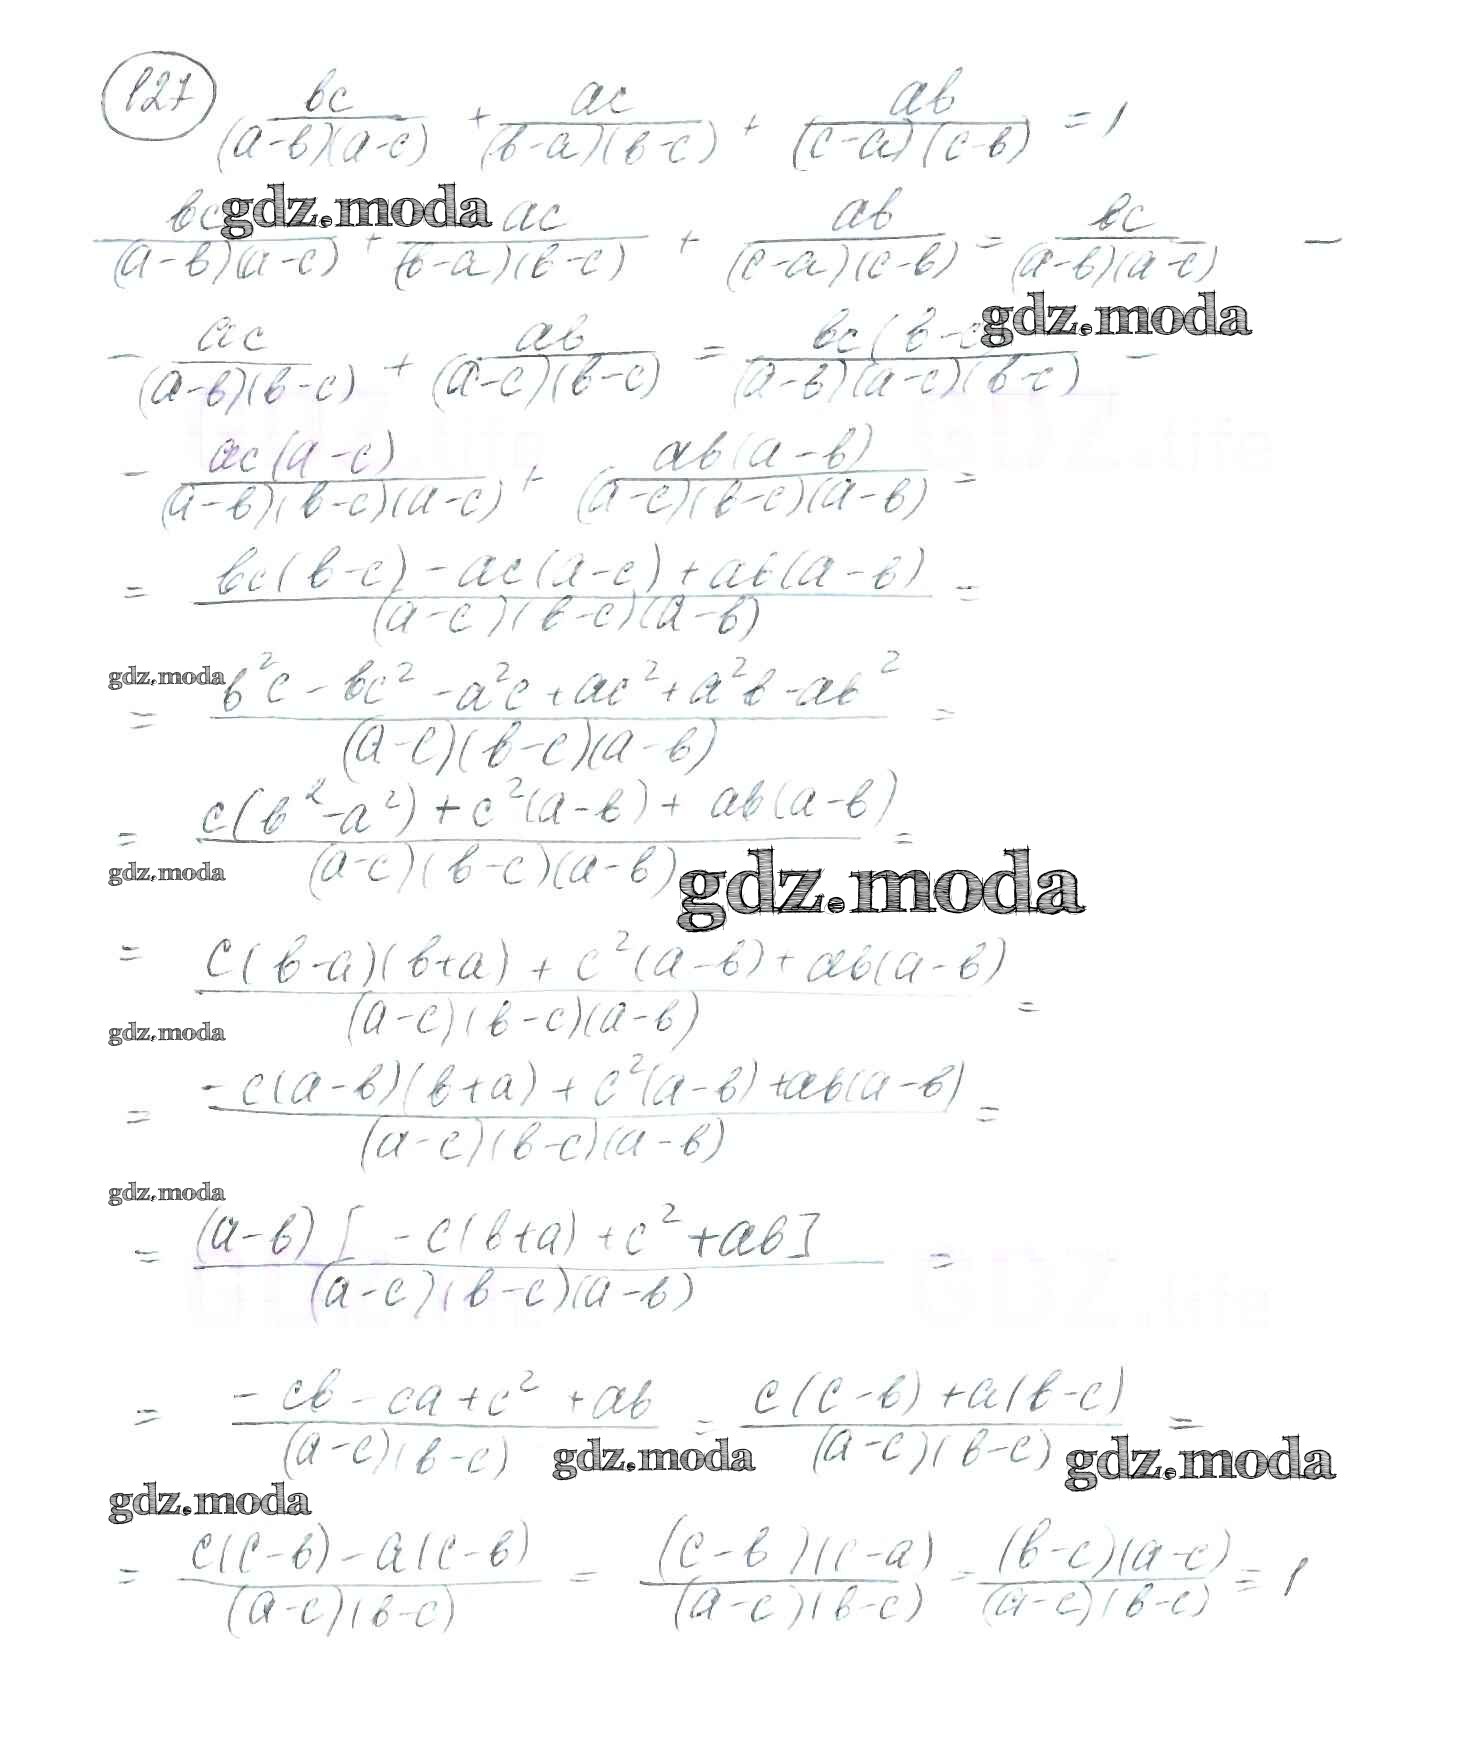 127 bc/((a-b)(a-c)) + ac/((b-a)(b-c)) + ab/((c-a)(c-b)) = 1
bc/((a-b)(a-c)) + ac/((b-a)(b-c)) + ab/((c-a)(c-b)) = bc/((a-b)(a-c)) -
gdz.moda
- ac/((a-b)(b-c)) + ab/((a-c)(b-c)) = bc(b-c)/((a-b)(a-c)(b-c)) -
gdz.moda
- ac(a-c)/((a-b)(b-c)(a-c)) + ab(a-b)/((a-c)(b-c)(a-b)) =
= (bc(b-c) - ac(a-c) + ab(a-b))/((a-c)(b-c)(a-b)) =
gdz.moda
= (b²c - bc² - a²c + ac² + a²b - ab²)/((a-c)(b-c)(a-b)) =
= (c(b²-a²) + c²(a-b) + ab(a-b))/((a-c)(b-c)(a-b)) =
gdz.moda
gdz.moda
= (c(b-a)(b+a) + c²(a-b) + ab(a-b))/((a-c)(b-c)(a-b)) =
gdz.moda
= (-c(a-b)(b+a) + c²(a-b) + ab(a-b))/((a-c)(b-c)(a-b)) =
gdz.moda
= (a-b)[-c(b+a) + c² + ab]/((a-c)(b-c)(a-b)) =
GDZ.life
= (-cb - ca + c² + ab)/((a-c)(b-c)) = (c(c-b) + a(b-c))/((a-c)(b-c)) =
gdz.moda
gdz.moda
gdz.moda
= (c(c-b) - a(c-b))/((a-c)(b-c)) = (c-b)(c-a)/((a-c)(b-c)) = (b-c)(a-c)/((a-c)(b-c)) = 1